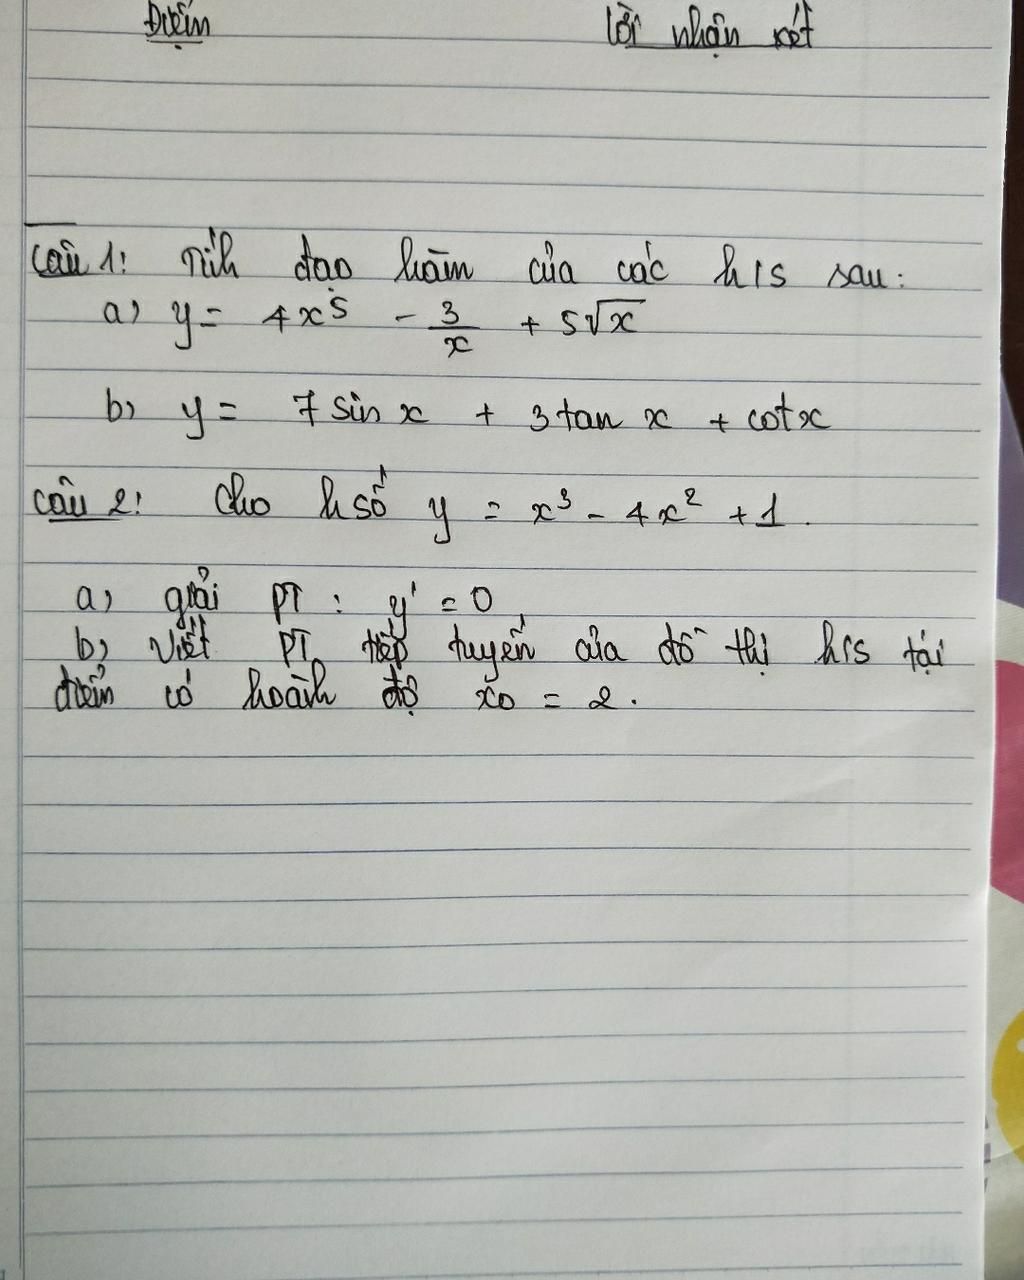 Điểm Lời nhận xét
Câu 1: Tính đạo hàm của các h/s sau:
a) y = 4x⁵ - 3/x + 5√x
b) y = 7 sin x + 3 tan x + cot x
Câu 2: Cho h số y = x³ - 4x² + 1.
a) giải PT : y' = 0
b) Viết PT tiếp tuyến của đồ thị h/s tại
điểm có hoành độ x₀ = 2.